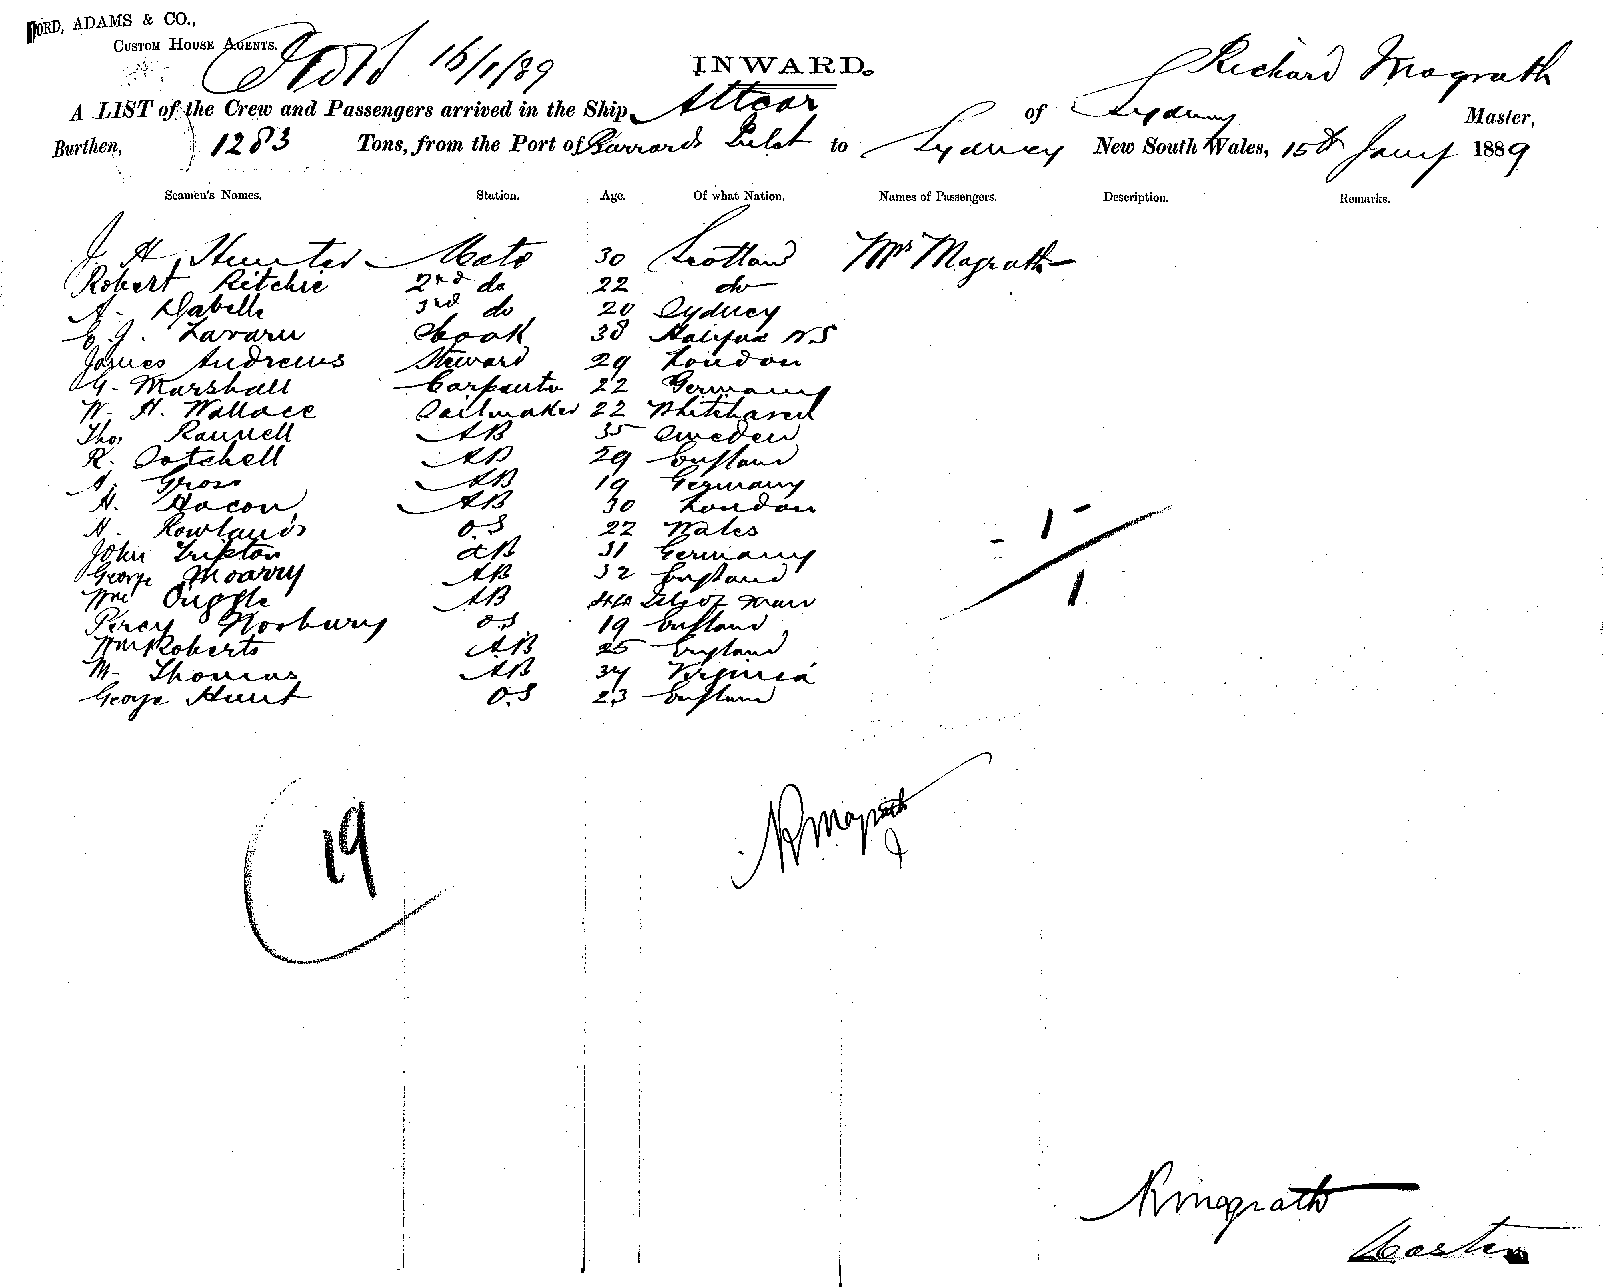 FORD, ADAMS & CO.,
CUSTOM HOUSE AGENTS.
16/1/89
INWARD.
Richard Magrath
A LIST of the Crew and Passengers arrived in the Ship Altcar of Sydney Master,
Burthen, 1283 Tons, from the Port of Burrards Inlet to Sydney New South Wales, 15th Jany 1889
Seamen's Names. Station. Age. Of what Nation. Names of Passengers. Description. Remarks.
J. H. Hunter Mate 30 Scotland Mrs Magrath
Robert Ritchie 2nd do 22 do
A. Dabelle 3rd do 20 Sydney
Cook 38 Halifax NS
James Andrews Steward 29 London
G. Marshall Carpenter 22 Germany
W. H. Wallace Sailmaker 22 Whitehaven
Thos Rannell AB 35 Sweden
R. Satchell AB 29 England
A. Gross AB 19 Germany
H. Hacon AB 30 London
H. Rowlands O.S 22 Wales
John AB 31 Germany
George Moarry AB 32 England
Wm Quggle AB 44 Isle of Man
Percy Norbury O.S 19 England
Wm Roberts AB 25 England
M. Thomas AB 34 Virginia
George Hunt O.S 23 England
- 1 -
1
19
R Magrath
R Magrath
Master